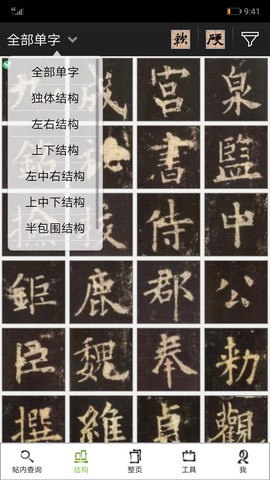 9:41
全部单字
軟 硬
全部单字
独体结构
左右结构
上下结构
左中右结构
上中下结构
半包围结构
成 宮 泉
書 監
侍 中
鉅 鹿 郡 公
臣 魏 奉 勑
撰 維 貞 觀
帖内查询 结构 整页 工具 我